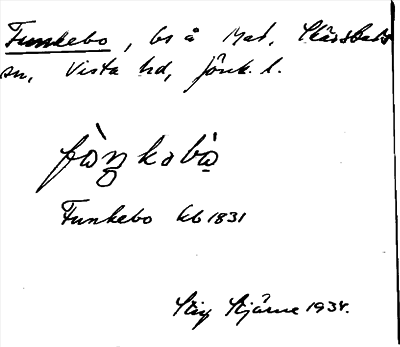 Funkebo, bs å Mad, Skärstads
sn, Vista hd, Jönk. l.
fàŋkəbò
Funkebo kb 1831
Stig Stjärne 1934.